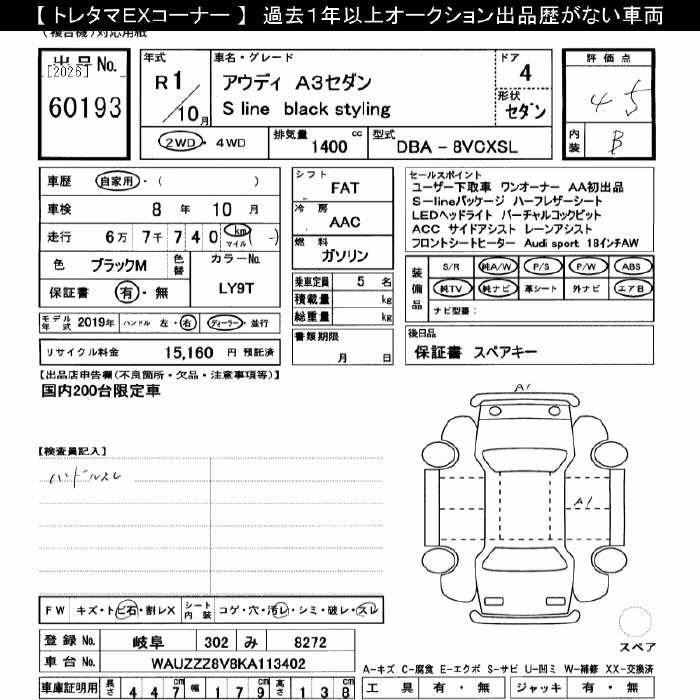 【 トレタマEXコーナー 】 過去1年以上オークション出品歴がない車両
(複合機)対応用紙
出品No.
[2026]
60193
年式
R1/10月
車名・グレード
アウディ A3セダン
S line black styling
ドア
4
形状
セダン
評価点
4 5
内装
B
2WD・4WD
排気量
1400 cc
型式
DBA - 8VCXSL
車歴 自家用・( )
車検 8年10月
走行 6万7千740 km マイル (-)
色 ブラックM
色替
カラーNo.
LY9T
保証書 有・無
モデル年式 2019年 ハンドル 左・右 ディーラー・並行
リサイクル料金 15,160 円 預託済
シフト
FAT
冷房
AAC
燃料
ガソリン
乗車定員 5 名
積載量 kg
総重量 kg
書類期限
月 日
セールスポイント
ユーザー下取車 ワンオーナー AA初出品
S-lineパッケージ ハーフレザーシート
LEDヘッドライト バーチャルコックピット
ACC サイドアシスト レーンアシスト
フロントシートヒーター Audi sport 18インチAW
装備品
S/R 純A/W P/S P/W ABS
純TV 純ナビ 革シート 外ナビ エアB
ナビ型番:
後日品
保証書 スペアキー
【出品店申告欄(不良箇所・欠品・注意事項等)】
国内200台限定車
【検査員記入】
ハンドルスレ
A1
A1
スペア
FW キズ・トビ石・割レX
シート内装 コゲ・穴・汚レ・シミ・破レ・スレ
登録No. 岐阜 302 み 8272
車台No. WAUZZZ8V8KA113402
車庫証明用 長さ 447cm 幅 179cm 高さ 138cm
A-キズ C-腐食 E-エクボ S-サビ U-凹ミ W-補修 XX-交換済
工具 有・無 ジャッキ 有・無